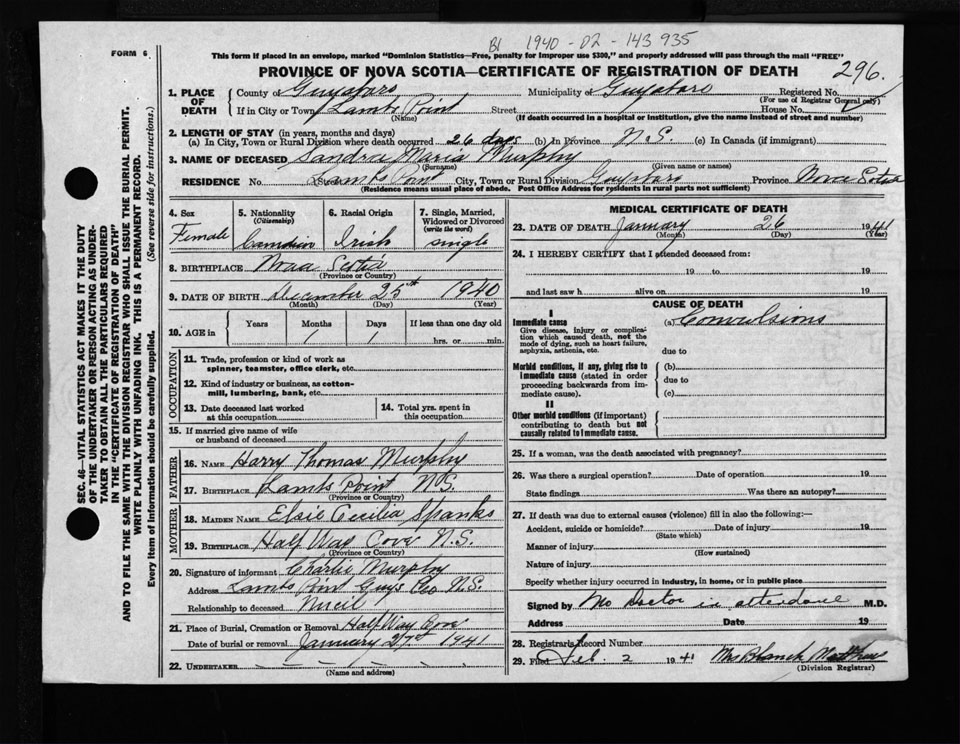 B1 1940 - 02 - 143 935
FORM 6
This form if placed in an envelope, marked "Dominion Statistics—Free, penalty for improper use $300," and properly addressed will pass through the mail "FREE"
PROVINCE OF NOVA SCOTIA—CERTIFICATE OF REGISTRATION OF DEATH
296.
1. PLACE OF DEATH
County of Guysboro Municipality of Guysboro Registered No.
(For use of Registrar General only)
If in City or Town Lambs Point Street House No.
(Name) (If death occurred in a hospital or institution, give the name instead of street and number)
2. LENGTH OF STAY (in years, months and days)
(a) In City, Town or Rural Division where death occurred 26 days (b) In Province N.S. (c) In Canada (if immigrant)
3. NAME OF DECEASED Sandra Maria Murphy
(Surname) (Given name or names)
RESIDENCE No. Street Lambs Point City, Town or Rural Division Guysboro Province Nova Scotia
(Residence means usual place of abode. Post Office Address for residents in rural parts not sufficient)
SEC. 46—VITAL STATISTICS ACT MAKES IT THE DUTY
OF THE UNDERTAKER OR PERSON ACTING AS UNDER-
TAKER TO OBTAIN ALL THE PARTICULARS REQUIRED
IN THE "CERTIFICATE OF REGISTRATION OF DEATH"
AND TO FILE THE SAME WITH THE DIVISION REGISTRAR WHO SHALL ISSUE THE BURIAL PERMIT.
WRITE PLAINLY WITH UNFADING INK. THIS IS A PERMANENT RECORD.
Every item of information should be carefully supplied. (See reverse side for instructions.)
4. Sex 5. Nationality 6. Racial Origin 7. Single, Married,
(Citizenship) Widowed or Divorced
(write the word)
Female Canadian Irish single
8. BIRTHPLACE Nova Scotia
(Province or Country)
9. DATE OF BIRTH December 25th 1940
(Month) (Day) (Year)
10. AGE in Years Months Days If less than one day old
1 1 hrs. or min.
OCCUPATION
11. Trade, profession or kind of work as
spinner, teamster, office clerk, etc.
12. Kind of industry or business, as cotton-
mill, lumbering, bank, etc.
13. Date deceased last worked
at this occupation
14. Total yrs. spent in
this occupation
15. If married give name of wife
or husband of deceased
FATHER
16. NAME Harry Thomas Murphy
17. BIRTHPLACE Lambs Point N.S.
(Province or Country)
MOTHER
18. MAIDEN NAME Elsie Cecilia Spanks
19. BIRTHPLACE Half Way Cove N.S.
(Province or Country)
20. Signature of informant Charlie Murphy
Address Lambs Point Guys Co N.S.
Relationship to deceased
21. Place of Burial, Cremation or Removal Half Way Cove
Date of burial or removal January 27th 1941
22. UNDERTAKER
(Name and address)
MEDICAL CERTIFICATE OF DEATH
23. DATE OF DEATH January 26 1941
(Month) (Day) (Year)
24. I HEREBY CERTIFY that I attended deceased from:
19 to 19
and last saw h alive on 19
CAUSE OF DEATH
I
Immediate cause (a) Convulsions
Give disease, injury or complica-
tion which caused death, not the
mode of dying, such as heart failure,
asphyxia, asthenia, etc.
due to
Morbid conditions, if any, giving rise to
immediate cause (stated in order
proceeding backwards from im-
mediate cause).
(b)
due to
(c)
II
Other morbid conditions (if important)
contributing to death but not
causally related to immediate cause.
25. If a woman, was the death associated with pregnancy?
26. Was there a surgical operation? Date of operation 19
State findings Was there an autopsy?
27. If death was due to external causes (violence) fill in also the following:—
Accident, suicide or homicide? Date of injury 19
(State which)
Manner of injury
(How sustained)
Nature of injury
Specify whether injury occurred in industry, in home, or in public place
Signed by No Doctor in attendance M.D.
Address Date 19
28. Registrar's Record Number
29. Filed Feb. 2 1941 Mrs Blanch Matthews
(Division Registrar)